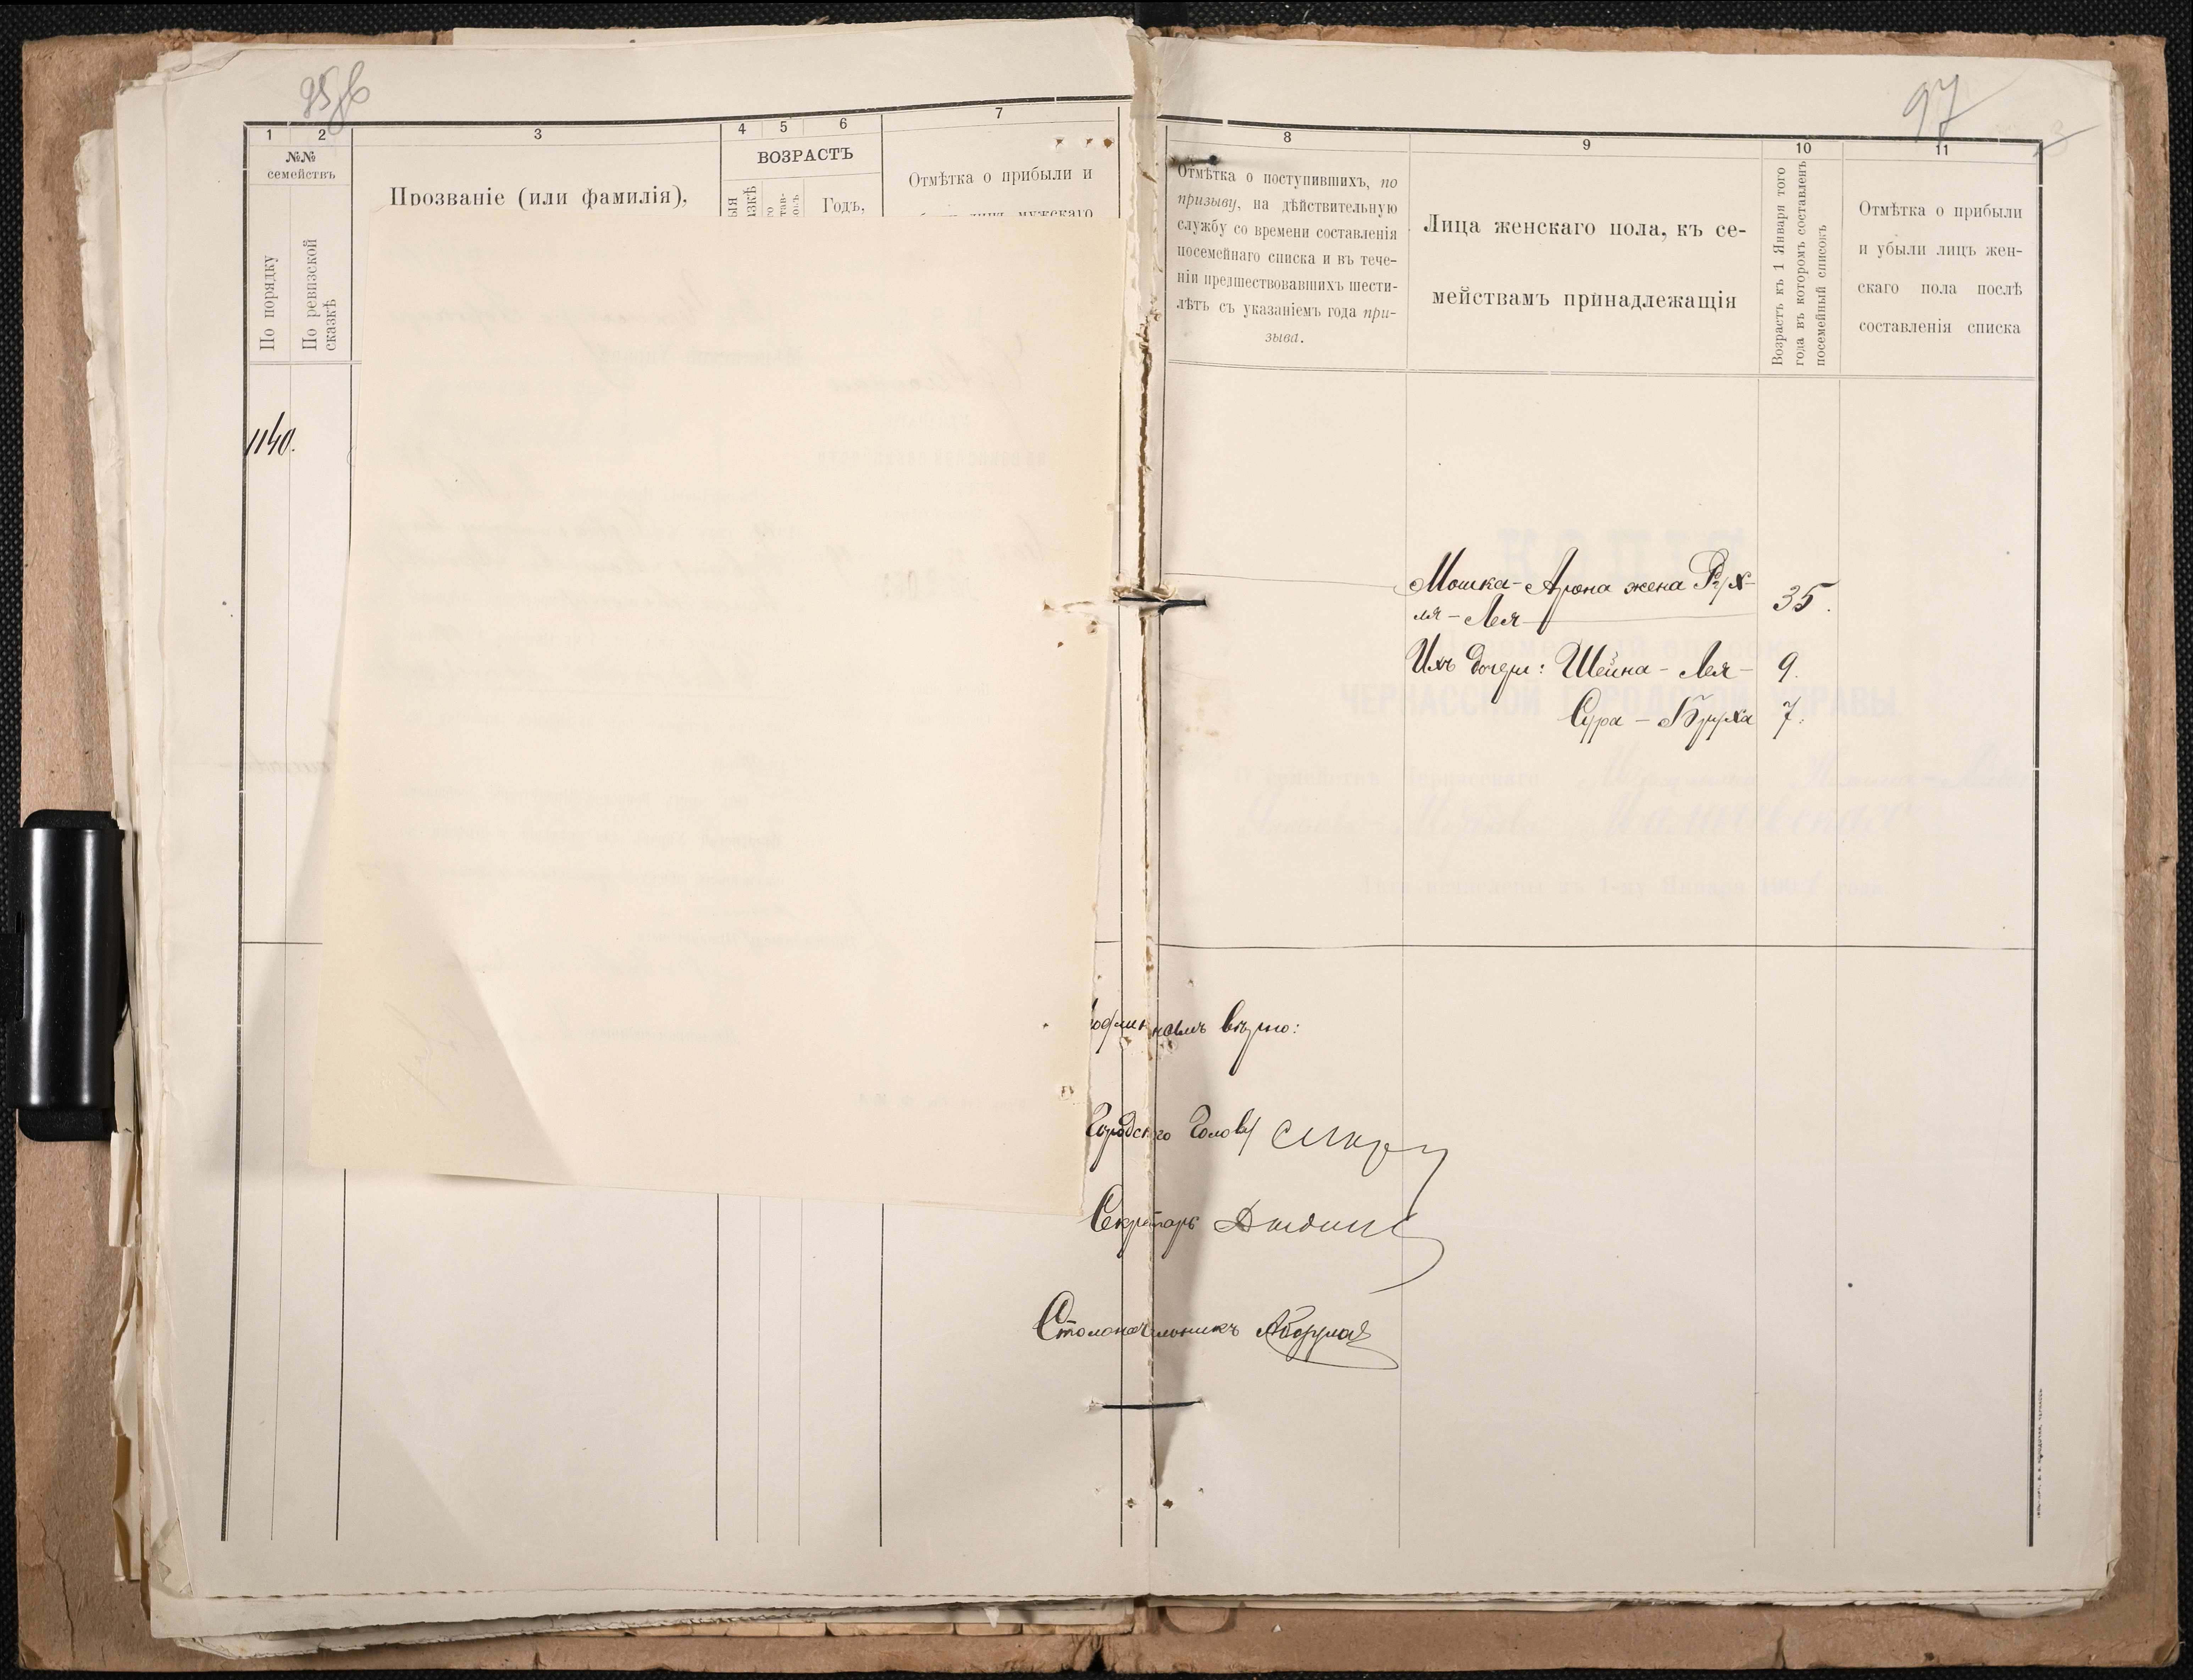 1
2
3
4
5
6
7
№№
семействъ
ВОЗРАСТЪ
Прозваніе (или фамилія),
Годъ,
Отмѣтка о прибыли и
По порядку
По ревизской
сказкѣ
1140.
97
8
9
10
11
Отмѣтка о поступившихъ, по
призыву, на дѣйствительную
службу со времени составленія
посемейнаго списка и въ тече-
ніи предшествовавшихъ шести-
лѣтъ съ указаніемъ года при-
зыва.
Лица женскаго пола, къ се-
мействамъ принадлежащія
Возрастъ къ 1 Января того
года въ которомъ составленъ
посемейный списокъ
Отмѣтка о прибыли
и убыли лицъ жен-
скаго пола послѣ
составленія списка
Мошка-Арона жена Рух-
ля-Лея 35.
Ихъ дочери: Шейна-Лея- 9.
Сура-Бруха 7.
вѣрно:
Городского Голову
Секретарь
Столоначальникъ